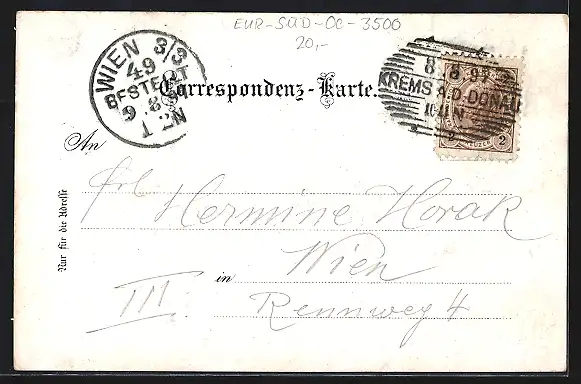 EUR-SÜD-OC-3500
20,-
WIEN 3/3
49
BESTELLT
9. 8. 9
1 N
8. 8. 97
KREMS A/D. DONAU
N
KREUZER
2
Correspondenz-Karte.
An
Frl
Hermine Horak
in Wien
III. Rennweg 4
Nur für die Adresse